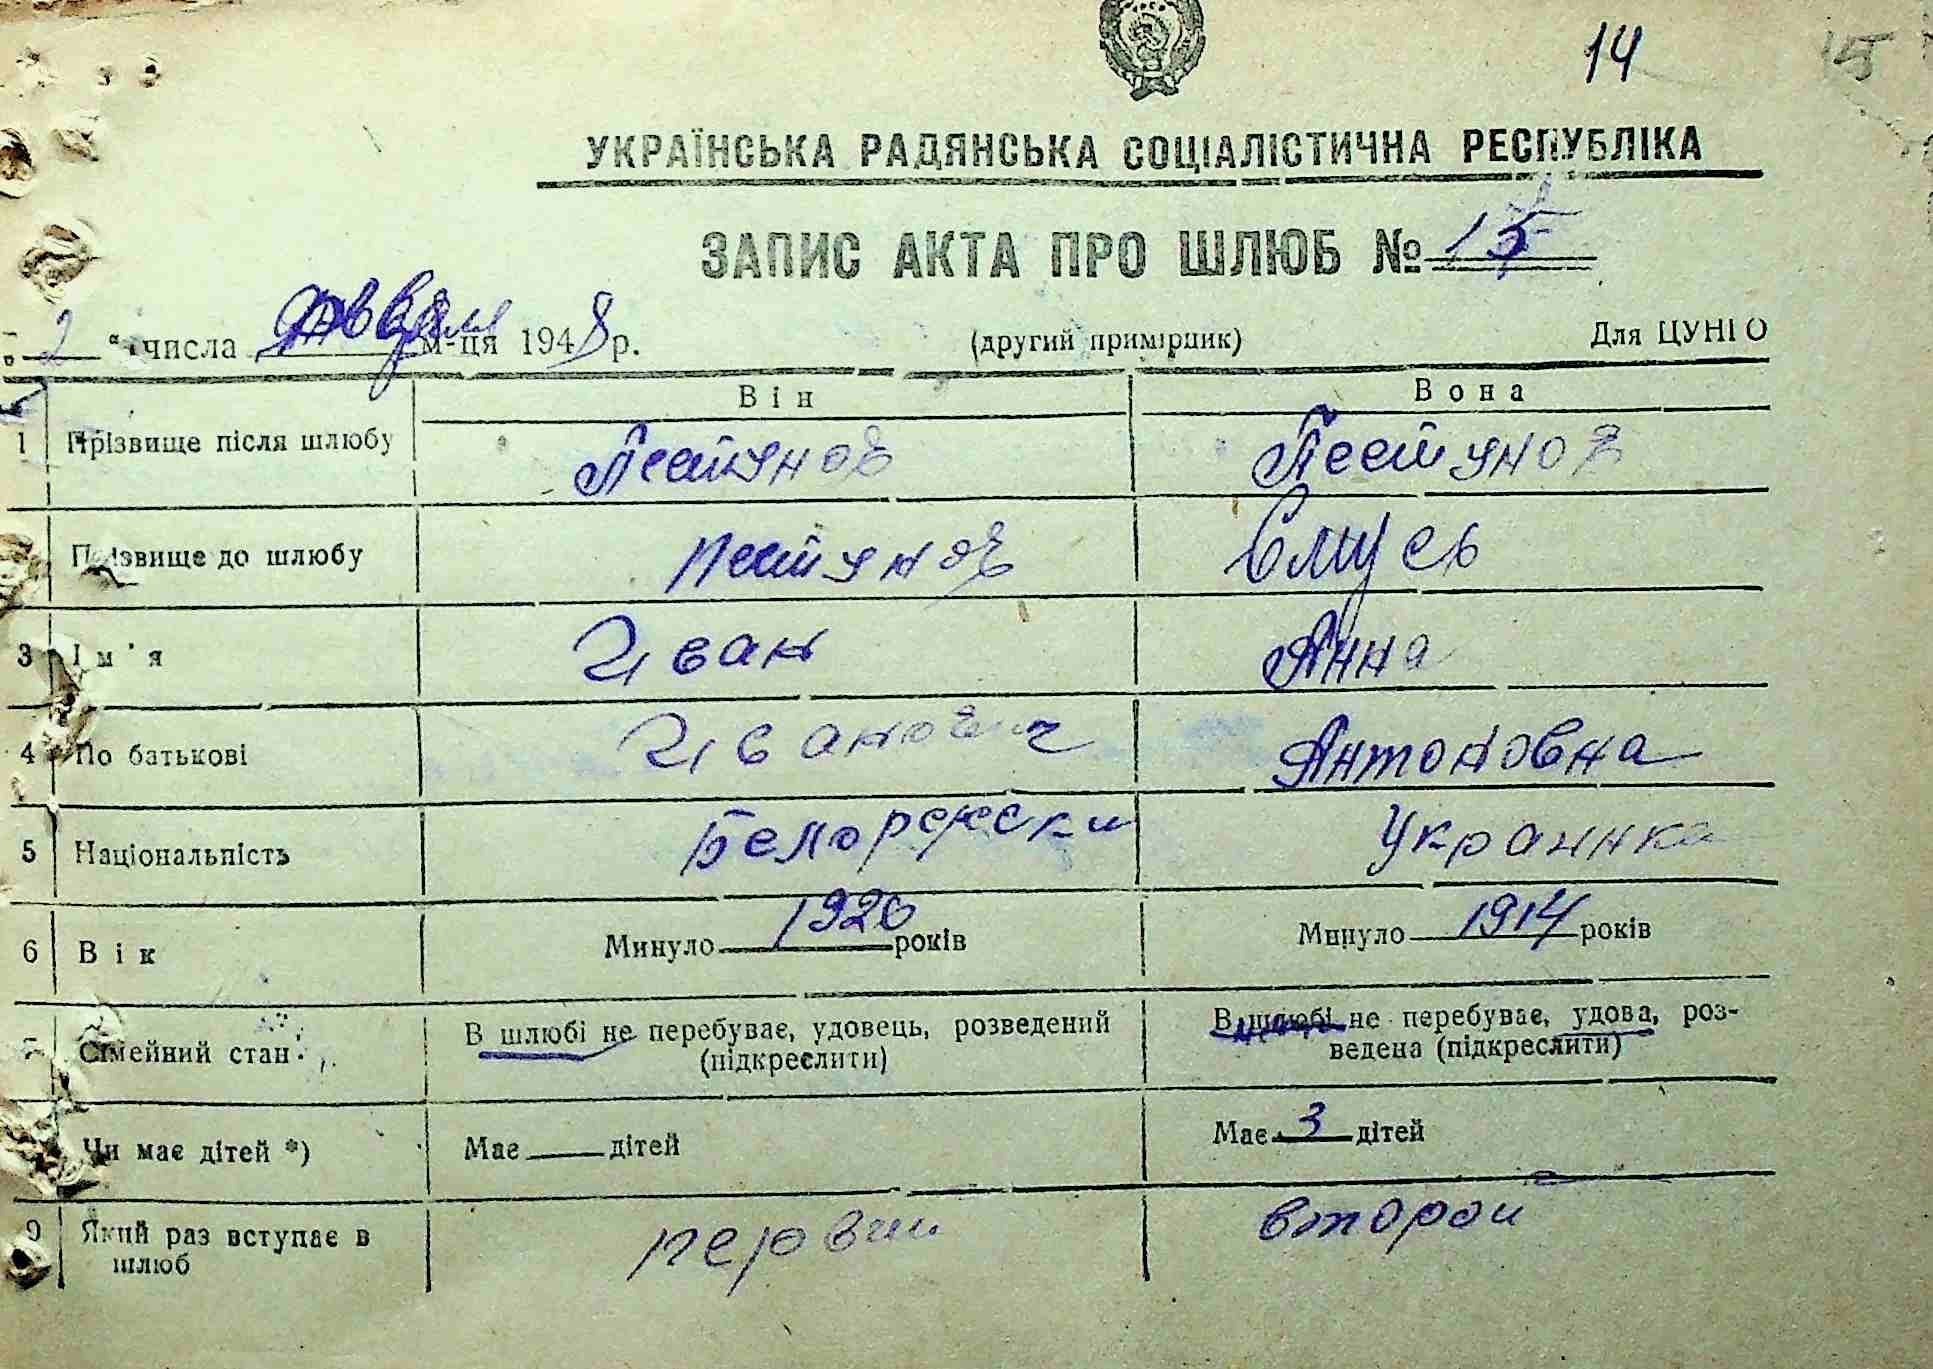 14 15
УКРАЇНСЬКА РАДЯНСЬКА СОЦІАЛІСТИЧНА РЕСПУБЛІКА
ЗАПИС АКТА ПРО ШЛЮБ № 15
2 " числа м-ця 1948 р. (другий примірник) Для ЦУНГО
Він Вона
1 Прізвище після шлюбу Пестунов Пестунов
Прізвище до шлюбу Пестунов Смусь
3 Ім'я Иван Анна
4 По батькові Иванович Антоновна
5 Національність Белоруски Украинка
6 Вік Минуло 1920 років Минуло 1914 років
7 Сімейний стан В шлюбі не перебуває, удовець, розведений (підкреслити) В шлюбі не перебуває, удова, роз-
ведена (підкреслити)
Чи має дітей *) Має дітей Має 3 дітей
9 Який раз вступає в шлюб первий второй